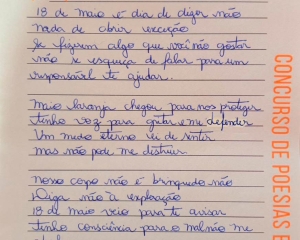 18 de maio é dia de dizer não
nada de abrir exceção
se fizerem algo que você não gostar
não se esqueça de falar para um
responsável te ajudar..
Maio laranja chegou para nos proteger
tenho voz para gritar e me defender
Um medo eterno irei de sentir
mas não pode me destruir
nosso corpo não é brinquedo não
Diga não à exploração
18 de maio veio para te avisar
tenha consciência para o mal não me
CONCURSO DE POESIAS E